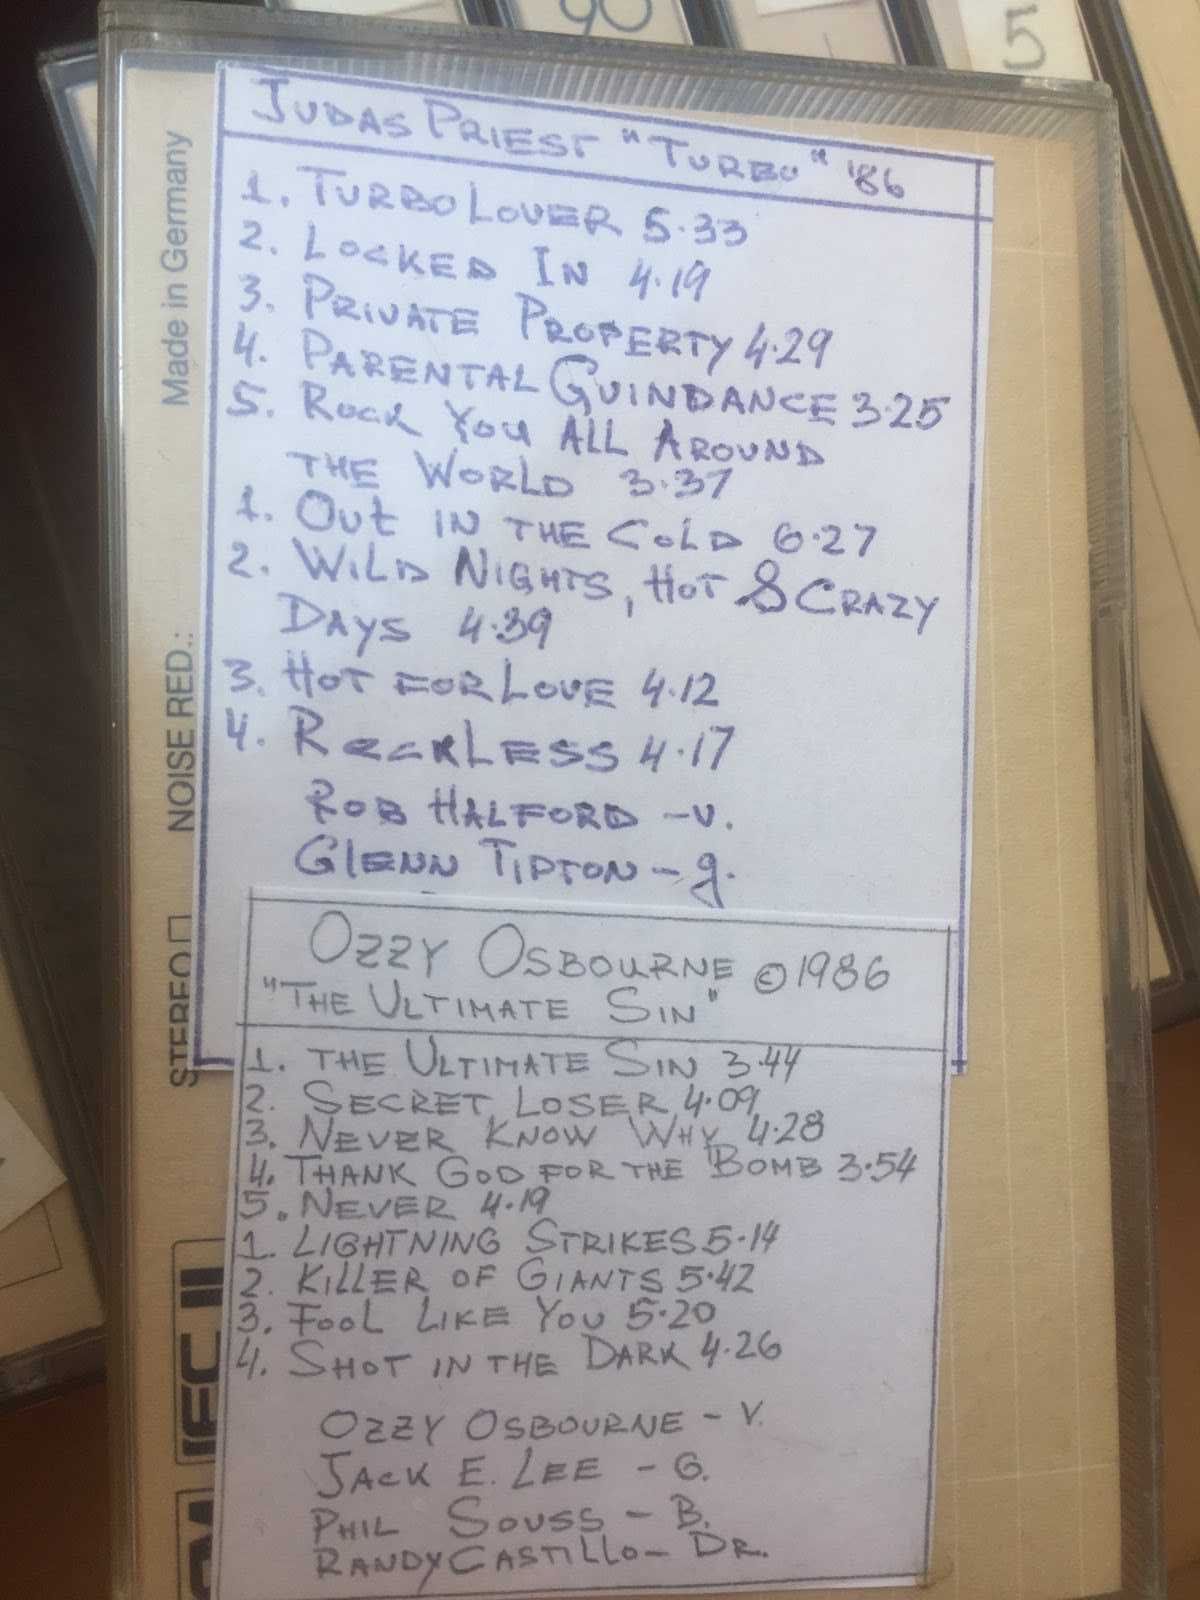 90
5
JUDAS PRIEST "TURBO" '86
1. TURBO LOVER 5.33
2. LOCKED IN 4.19
3. PRIVATE PROPERTY 4.29
4. PARENTAL GUINDANCE 3.25
5. ROCK YOU ALL AROUND
THE WORLD 3.37
1. OUT IN THE COLD 6.27
2. WILD NIGHTS, HOT & CRAZY
DAYS 4.39
3. HOT FOR LOVE 4.12
4. RECKLESS 4.17
ROB HALFORD - V.
GLENN TIPTON - g.
OZZY OSBOURNE © 1986
"THE ULTIMATE SIN"
1. THE ULTIMATE SIN 3.44
2. SECRET LOSER 4.09
3. NEVER KNOW WHY 4.28
4. THANK GOD FOR THE BOMB 3.54
5. NEVER 4.19
1. LIGHTNING STRIKES 5.14
2. KILLER OF GIANTS 5.42
3. FOOL LIKE YOU 5.20
4. SHOT IN THE DARK 4.26
OZZY OSBOURNE - V.
JACK E. LEE - G.
PHIL SOUSS - B.
RANDY CASTILLO - DR.
Made in Germany
NOISE RED.:
STEREO
IEC II